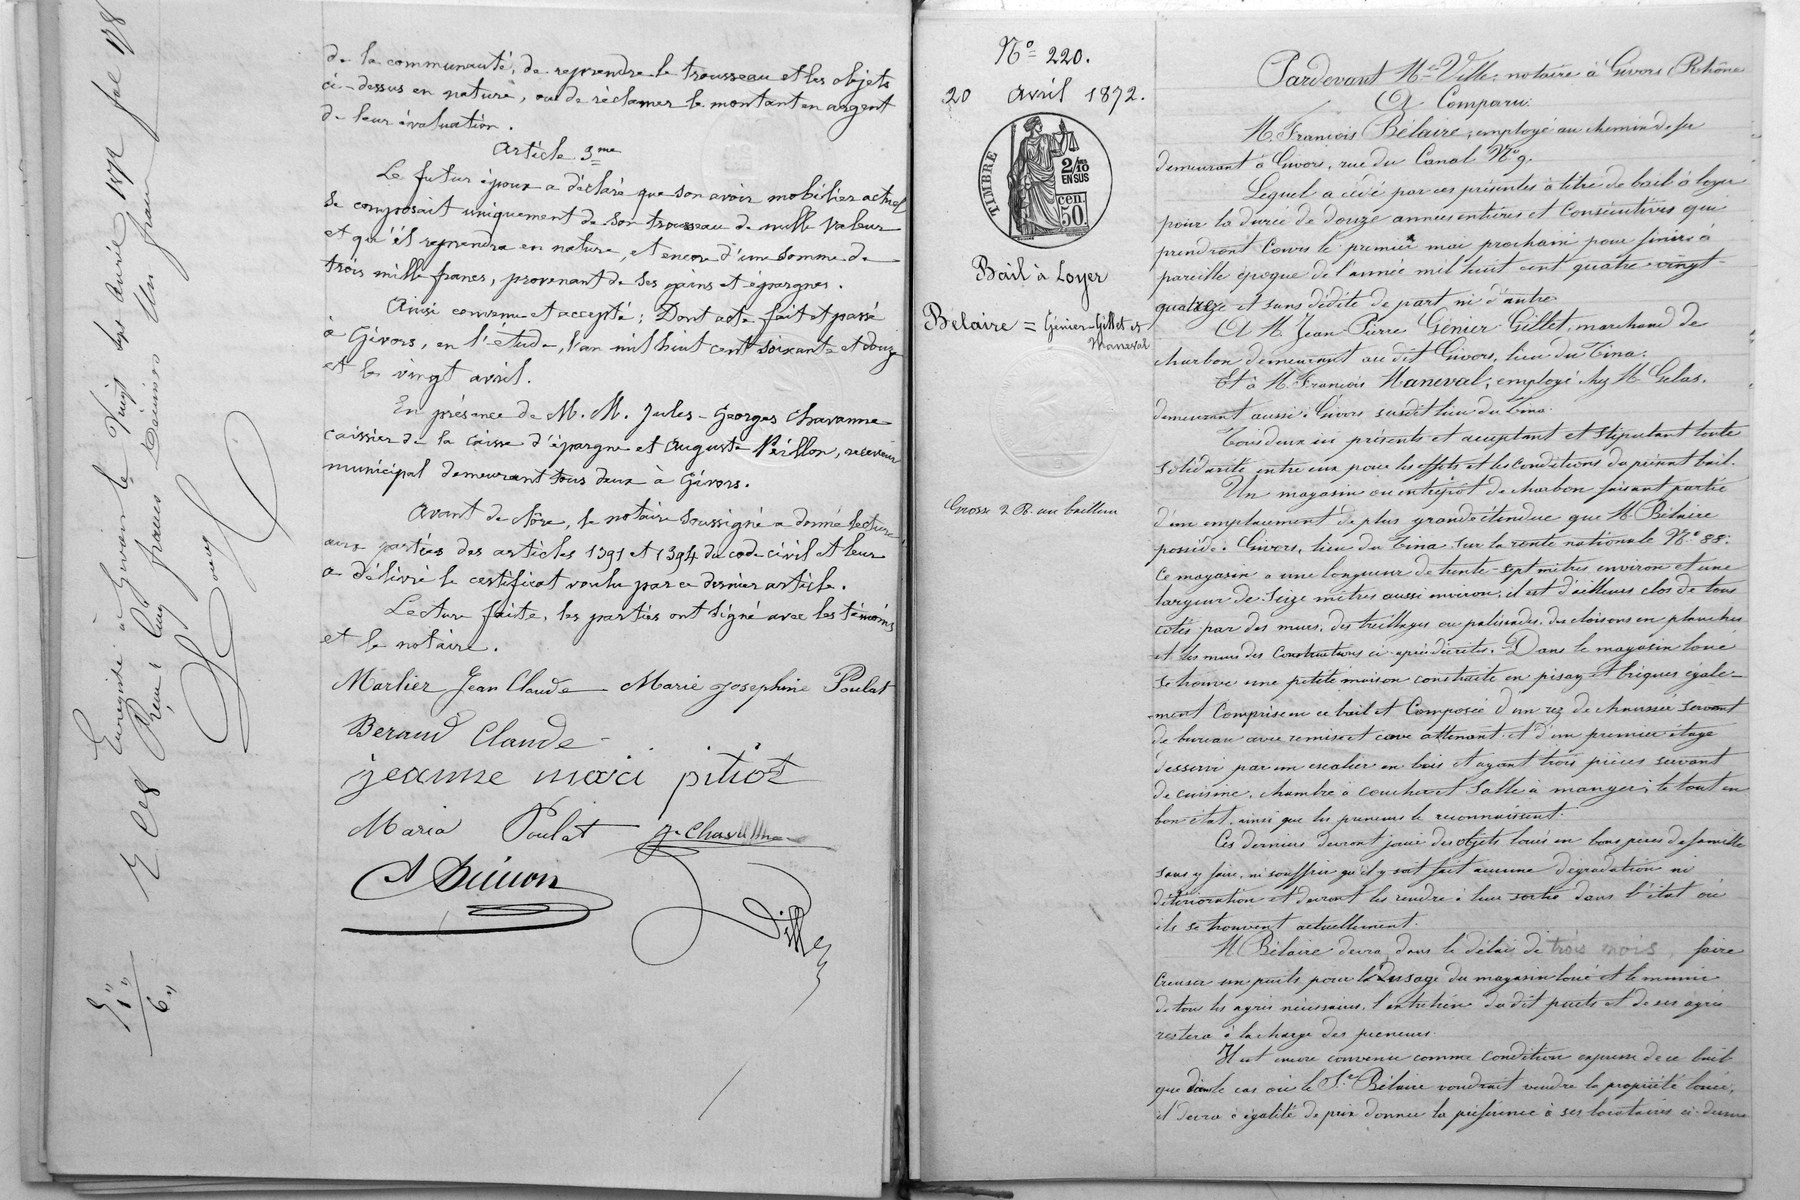 de la communauté, de reprendre le trousseau et les objets
ci-dessus en nature, ou de réclamer le montant en argent
de leur évaluation.
Article 3me
Le futur époux a déclaré que son avoir mobilier actuel
se composait uniquement de son trousseau de mille valeur
et qu'il reprendra en nature, et encore d'une somme de
trois mille francs, provenant de ses gains et épargnes.
Ainsi convenu et accepté; Dont acte fait et passé
à Givors, en l'étude, l'an mil huit cent soixante et douze
et le vingt avril.
En présence de M. M. Jules-Georges Chavanne
caissier de la caisse d'épargne et Auguste Périllon, receveur
municipal demeurant tous deux à Givors.
Avant de clôre, le notaire soussigné a donné lecture
aux parties des articles 1391 et 1394 du code civil et leur
a délivré le certificat voulu par ce dernier article.
Lecture faite, les parties ont signé avec les témoins
et le notaire.
Marlier Jean Claude Marie Josephine Poulat
Beraud Claude
jeanne mari pitiot
Maria Poulat
Ville
Enregistré à Givors le vingt six avril 1872 fol 178
Reçu cinq francs Décimes Un franc
5 "
1 "
6 "
No 220.
20 avril 1872.
TIMBRE
2/10
EN SUS
50 cen.
Bail à Loyer
Bélaire = Génier-Gillet et
Maneval
Grosse 2 R. au bailleur
Pardevant Me Ville, notaire à Givors (Rhône
A Comparu:
M. François Bélaire, employé au chemin de fer
demeurant à Givors, rue du Canal No 9.
Lequel a cédé par ces présentes à titre de bail à loyer
pour la durée de douze années entières et consécutives qui
prendront cours le premier mai prochain pour finir à
pareille époque de l'année mil huit cent quatre-vingt-
quatre et sans dédite de part ni d'autre.
A M. Jean-Pierre Génier Gillet, marchand de
charbon demeurant au dit Givors, lieu du Tina.
Et à M. François Maneval, employé chez M. Gelas,
demeurant aussi à Givors susdit lieu du Tina.
Tous deux ici présents et acceptant et stipulant toute
solidarité entre eux pour les effets et les conditions du présent bail.
Un magasin ou entrepôt de charbon faisant partie
d'un emplacement de plus grande étendue que M. Bélaire
possède à Givors, lieu du Tina sur la route nationale No 88.
Ce magasin a une longueur de trente-sept mètres environ et une
largeur de seize mètres aussi environ; il est d'ailleurs clos de tous
côtés par des murs, des treillages ou palissades, des cloisons en planches
et les murs des constructions ci-après décrites. Dans le magasin loué
se trouve une petite maison construite en pisay et briques égale-
-ment comprise en ce bail et composée d'un rez de chaussée servant
de bureau avec remise et cave attenant et d'un premier étage
desservi par un escalier en bois et ayant trois pièces servant
de cuisine, chambre à coucher et salle à manger; le tout en
bon état, ainsi que les preneurs le reconnaissent.
Ces derniers devront jouir des objets loués en bons pères de famille
sans y faire, ni souffrir qu'il y soit fait aucune dégradation ni
détérioration et devront les rendre à leur sortie dans l'état où
ils se trouvent actuellement.
M. Bélaire devra, dans le délai de trois mois, faire
creuser un puits pour l'usage du magasin loué et le munir
de tous les agrès nécessaires, l'entretien du dit puits et de ses agrès
restera à la charge des preneurs.
Il est encore convenu comme condition expresse de ce bail
que dans le cas où le Sr Bélaire voudrait vendre la propriété louée,
il devra à égalité de prix donner la préférence à ses locataires ci-dessus